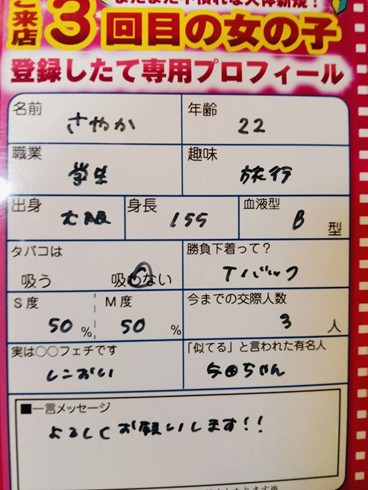 ご来店 3回目の女の子
登録したて専用プロフィール
名前 さやか 年齢 22
職業 学生 趣味 旅行
出身 大阪 身長 155 血液型 B 型
タバコは 吸う 吸わない 勝負下着って? Tバック
S度 50% M度 50% 今までの交際人数 3人
実は○○フェチです しこおい 「似てる」と言われた有名人 今田ちゃん
■一言メッセージ
よろしくお願いします!!